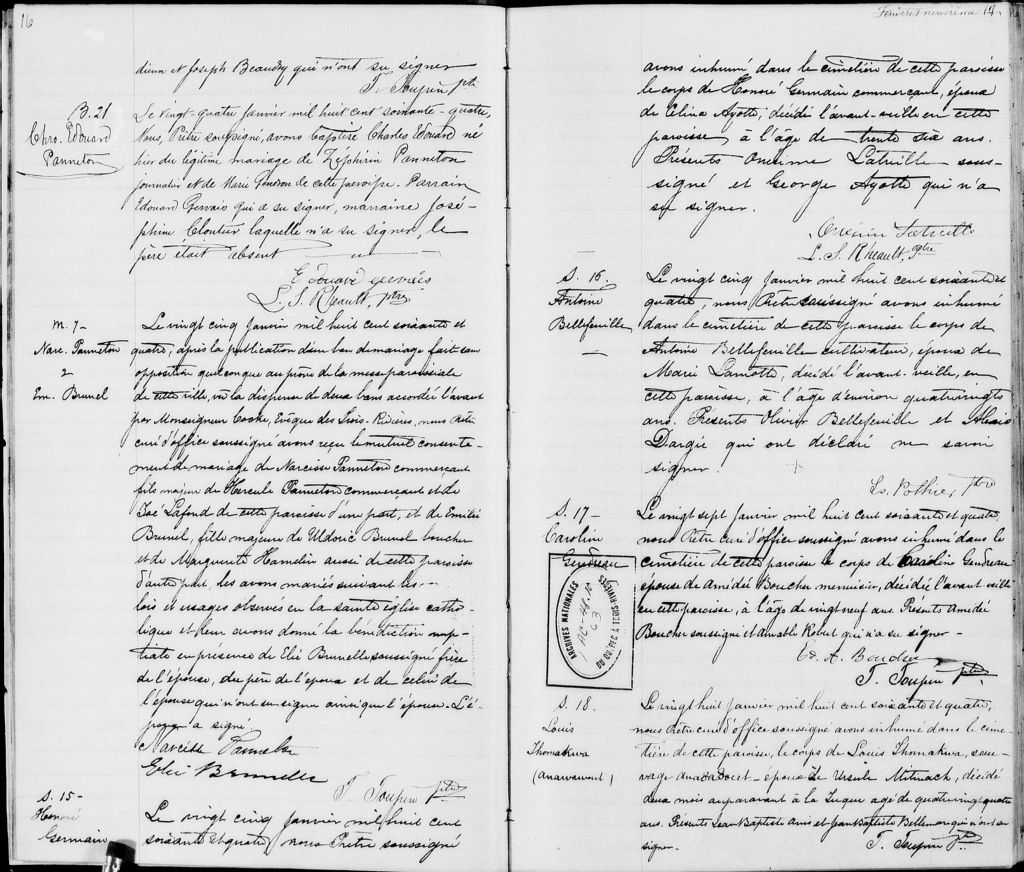 16
dieux et Joseph Beaudry qui n'ont su signer
T. Toupin ptr
B. 21
Chrs. Edouard
Panneton
Le vingt-quatre janvier mil huit cent soixante-quatre,
Nous, Prêtre soussigné, avons baptisé Charles Edouard né
hier du légitime mariage de Zéphirin Panneton
journalier et de Marie Gendron de cette paroisse. Parrain
Edouard Gervais qui a su signer, marraine José-
phine Cloutier laquelle n'a su signer, le
père était absent
Edouard gervais
L. S. Rheault, ptre
M. 7-
Narc. Panneton
&
Em. Brunel
Le vingt cinq Janvier mil huit cent soixante et
quatre, après la publication d'un ban de mariage fait sans
opposition quelconque au prône de la messe paroissiale
de cette ville, vu la dispense de deux bans accordée
par Monseigneur Cooke, Evêque des Trois-Rivières, nous Prêtre
curé d'office soussigné avons reçu le mutuel consente-
ment de mariage de Narcisse Panneton commerçant
fils majeur de Hercule Panneton commerçant et de
Lafond de cette paroisse d'une part, et de Emilie
Brunel, fille majeure de Uldoric Brunel boucher
et de Marguerite Hamelin aussi de cette paroisse
d'autre part, les avons mariés suivant les
lois et usages observés en la sainte église catho-
lique et leur avons donné la bénédiction nup-
tiale en présence de Elié Brunelle soussigné frère
de l'épouse, du père de l'époux et de celui de
l'épouse qui n'ont su signer ainsi que l'épouse. L'é-
poux a signé.
Narcisse Panneton
Elié Brunelle
T. Toupin ptre
S. 15-
Honoré
Germain
Le vingt cinq janvier mil huit cent
soixante et quatre, nous Prêtre soussigné
avons inhumé dans le cimetière de cette paroisse
le corps de Honoré Germain commerçant, époux
de Célina Ayotte, décédé l'avant-veille en cette
paroisse à l'âge de trente six ans.
Présents Onésime Latreille sous-
signé et George Ayotte qui n'a
su signer.
Onésime Latreille
L. S. Rheault, Ptre
S. 16
Antoine
Bellefeuille
Le vingt cinq Janvier mil huit cent soixante et
quatre, nous Prêtre soussigné avons inhumé
dans le cimetière de cette paroisse le corps de
Antoine Bellefeuille cultivateur, époux de
Marie Lamotte, décédé l'avant-veille, en
cette paroisse, à l'âge d'environ quatrevingts
ans. Présents Olivier Bellefeuille et Alexis
Dargie qui ont déclaré ne savoir
signer.
Ls. Pothier, Ptre
S. 17-
Caroline
Gendreau
Le vingt sept janvier mil huit cent soixante et quatre
nous Prêtre curé d'office soussigné avons inhumé dans le
cimetière de cette paroisse le corps de Caroline Gendreau
épouse de Amédée Boucher menuisier, décédée l'avant veille
en cette paroisse, à l'âge de vingt neuf ans. Présents Amédée
Boucher soussigné et Amable Robert qui n'a su signer-
A. Boucher
T. Toupin ptre.
ARCHIVES NATIONALES
DU QUÉBEC À TROIS-RIVIÈRES
S. 18.
Louis
Thomakwa
Le vingt huit janvier mil huit cent soixante et quatre,
nous Prêtre curé d'office soussigné avons inhumé dans le cime-
tière de cette paroisse, le corps de Louis Thomakwa, sau-
vage époux de Ursule Mitmack, décédé
deux mois auparavant à la Tuque agé de quatrevingt quatre
ans. Présents Jean Baptiste Anis et Jean Baptiste Bellemare qui n'ont su
signer-
T. Toupin Ptre.